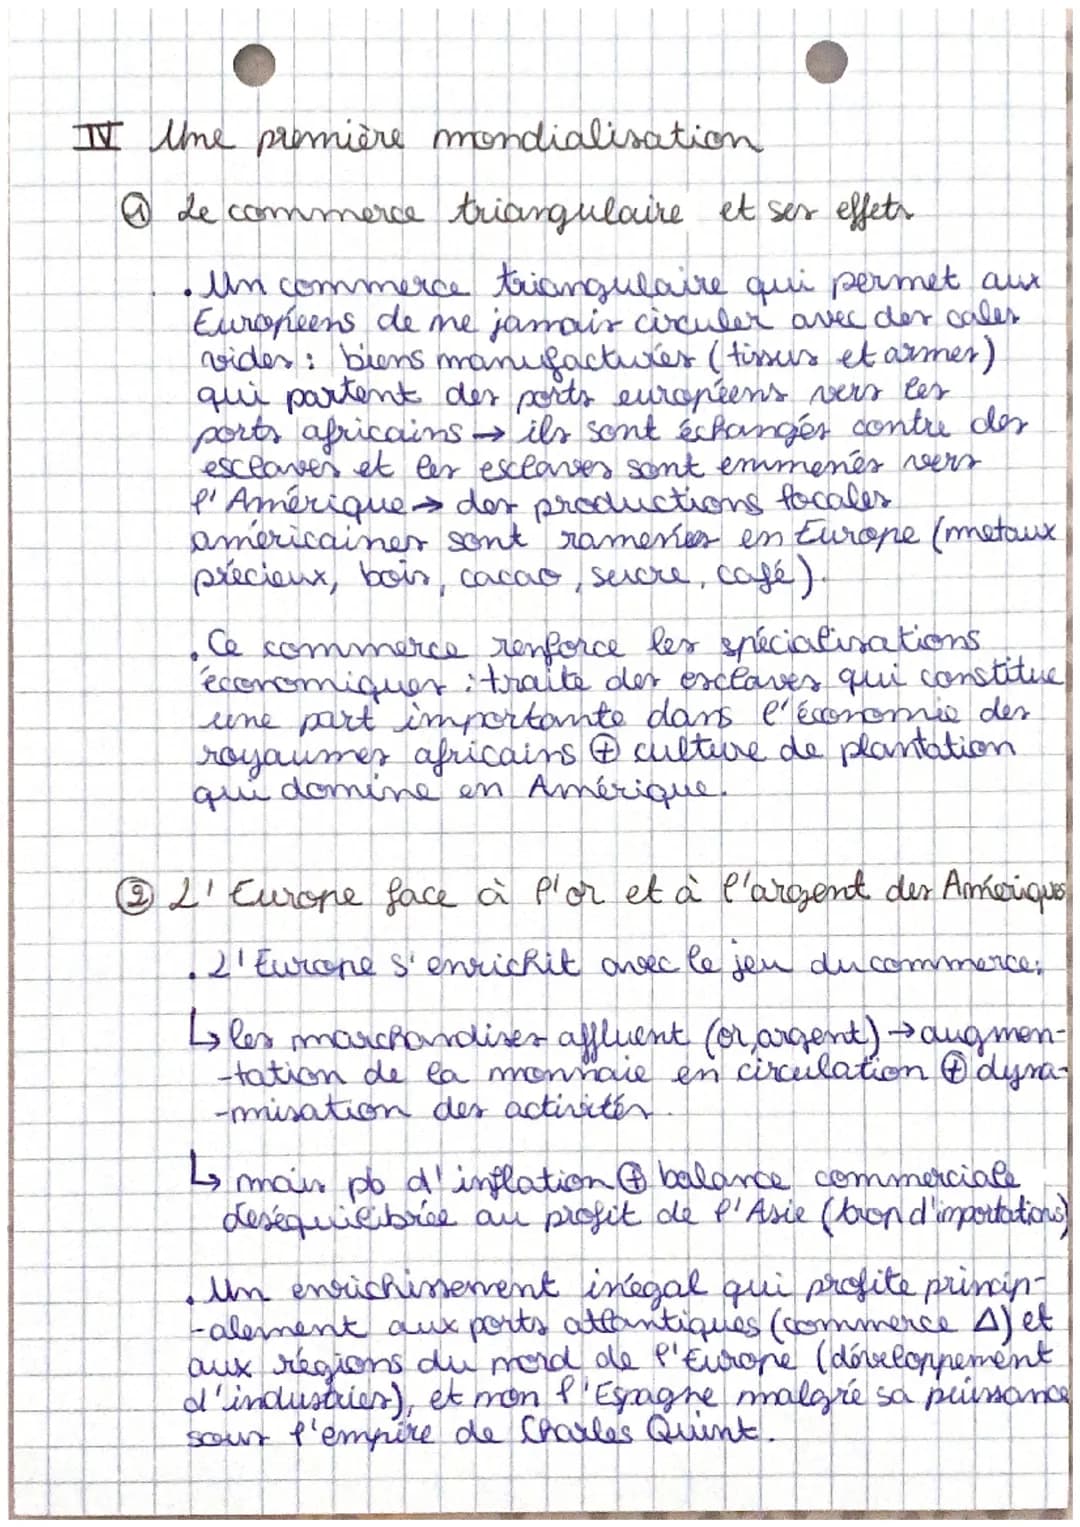 IV Une première mondialisation
① Le commerce triangulaire et ses effets
. Un commerce triangulaire qui permet aux
Européens de ne jamais circuler avec des cales
vides : biens manufacturés (tissus et armes)
qui partent des ports européens vers les
ports africains → ils sont échangés contre des
esclaves et les esclaves sont emmenés vers
l'Amérique → des productions locales
américaines sont ramenées en Europe (métaux
précieux, bois, cacao, sucre, café).
. Ce commerce renforce les spécialisations
économiques : traite des esclaves qui constitue
une part importante dans l'économie des
royaumes africains ⊕ culture de plantation
qui domine en Amérique.
② L'Europe face à l'or et à l'argent des Amériques
. L'Europe s'enrichit avec le jeu du commerce :
↳ les marchandises affluent (or, argent) → augmen-
-tation de la monnaie en circulation ⊕ dyna-
-misation des activités.
↳ mais pb d'inflation ⊕ balance commerciale
deséquilibrée au profit de l'Asie (trop d'importations)
. Un enrichissement inégal qui profite princip-
-alement aux ports atlantiques (commerce Δ) et
aux régions du nord de l'Europe (développement
d'industries), et non l'Espagne malgré sa puissance
sous l'empire de Charles Quint.